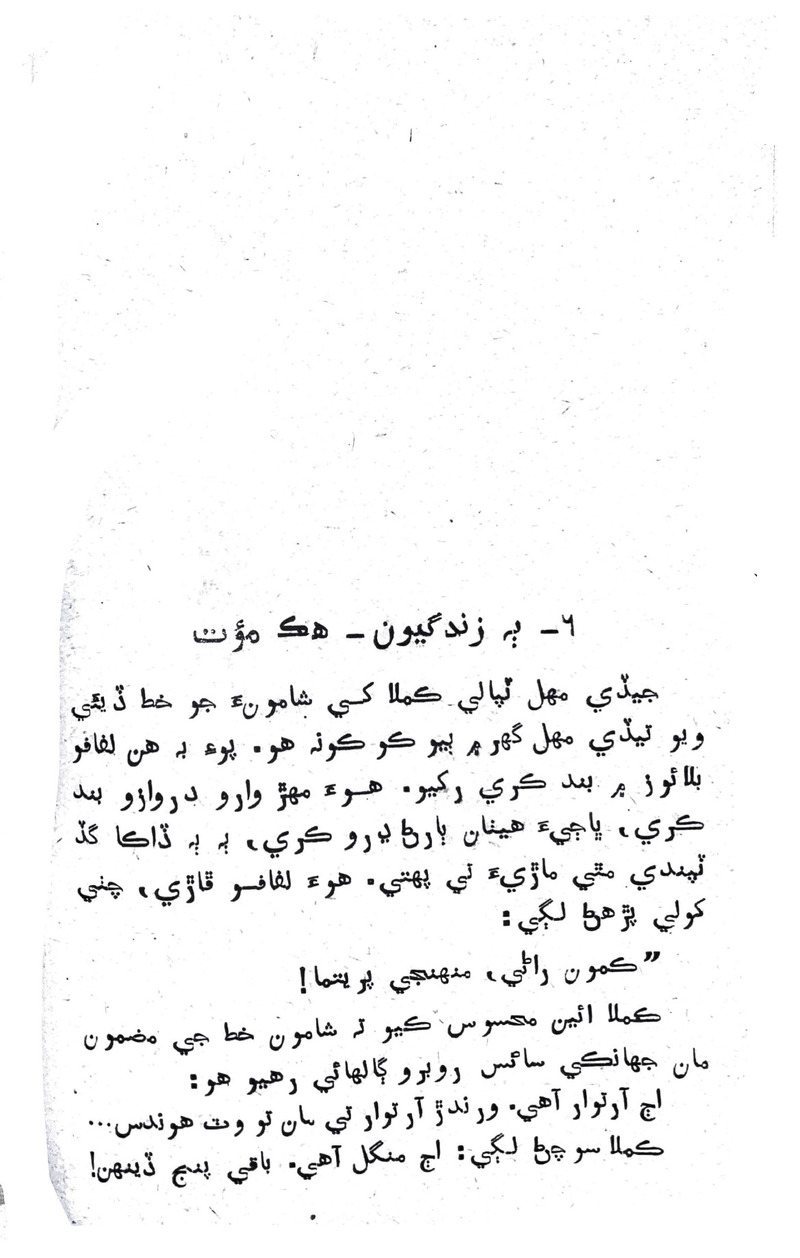 ٦- ٻه زندگيون - هڪ مؤت
جيڏي مهل ٽپالي ڪملا کي شامونءَ جو خط ڏيئي
ويو تيڏي مهل گهر ۾ ٻيو ڪو ڪونه هو. پوءِ به هن لفافو
بلائوز ۾ بند ڪري رکيو. هوءَ مهڙ وارو دروازو بند
ڪري، ڀاڄيءَ هيٺان ٻارڻ ڍرو ڪري، ٻه ٻه ڏاڪا گڏ
ٽپندي مٿي ماڙيءَ تي پهتي. هوءَ لفافو ڦاڙي، چٺي
کولي پڙهڻ لڳي:
”ڪمون راڻي، منهنجي پريتما!
ڪملا ائين محسوس ڪيو ته شامون خط جي مضمون
مان جهانڪي سائس روبرو ڳالهائي رهيو هو:
اڄ آرتوار آهي. ورندڙ آرتوار تي مان تو وٽ هوندس...
ڪملا سوچڻ لڳي: اڄ منگل آهي. باقي پنج ڏينهن!